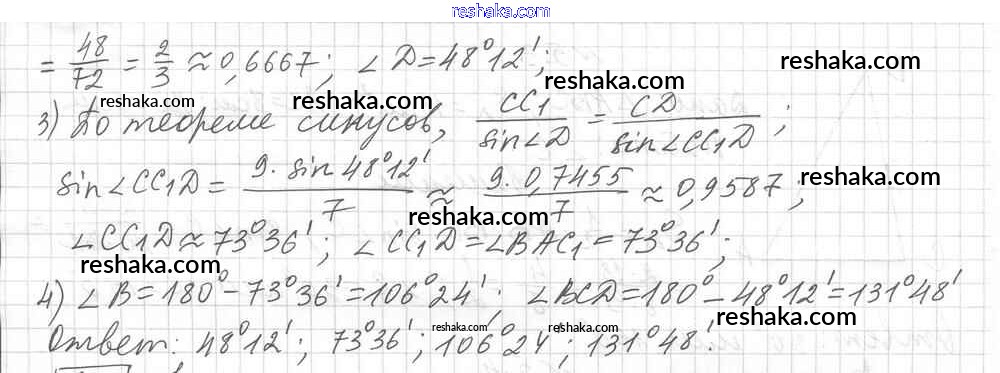 reshaka.com
= 48/72 = 2/3 ≈ 0,6667; ∠D = 48°12';
reshaka.com reshaka.com reshaka.com
3) По теореме синусов, CC₁/sin∠D = CD/sin∠CC₁D ;
sin∠CC₁D = 9·sin 48°12'/7 ≈ 9·0,7455/7 ≈ 0,9587;
reshaka.com
reshaka.com
∠CC₁D ≈ 73°36'; ∠CC₁D = ∠BAC₁ = 73°36';
reshaka.com
4) ∠B = 180° – 73°36' = 106°24'. ∠BCD = 180° – 48°12' = 131°48'
reshaka.com
Ответ: 48°12'; 73°36'; 106°24'; 131°48'.
reshaka.com reshaka.com